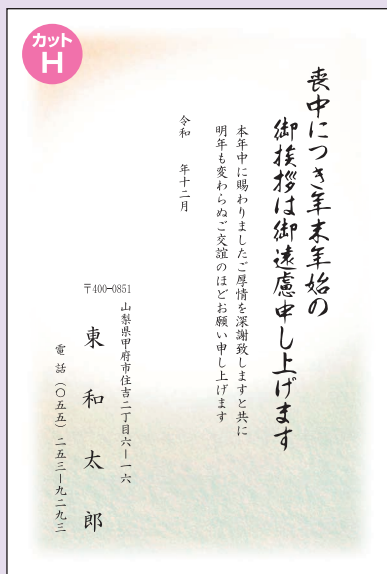 カット
H
喪中につき年末年始の
御挨拶は御遠慮申し上げます
本年中に賜わりましたご厚情を深謝致しますと共に
明年も変わらぬご交誼のほどお願い申し上げます
令和　年十二月
〒400-0851
山梨県甲府市住吉二丁目六ー一六
東和太郎
電話（〇五五）二五三ー九二九三